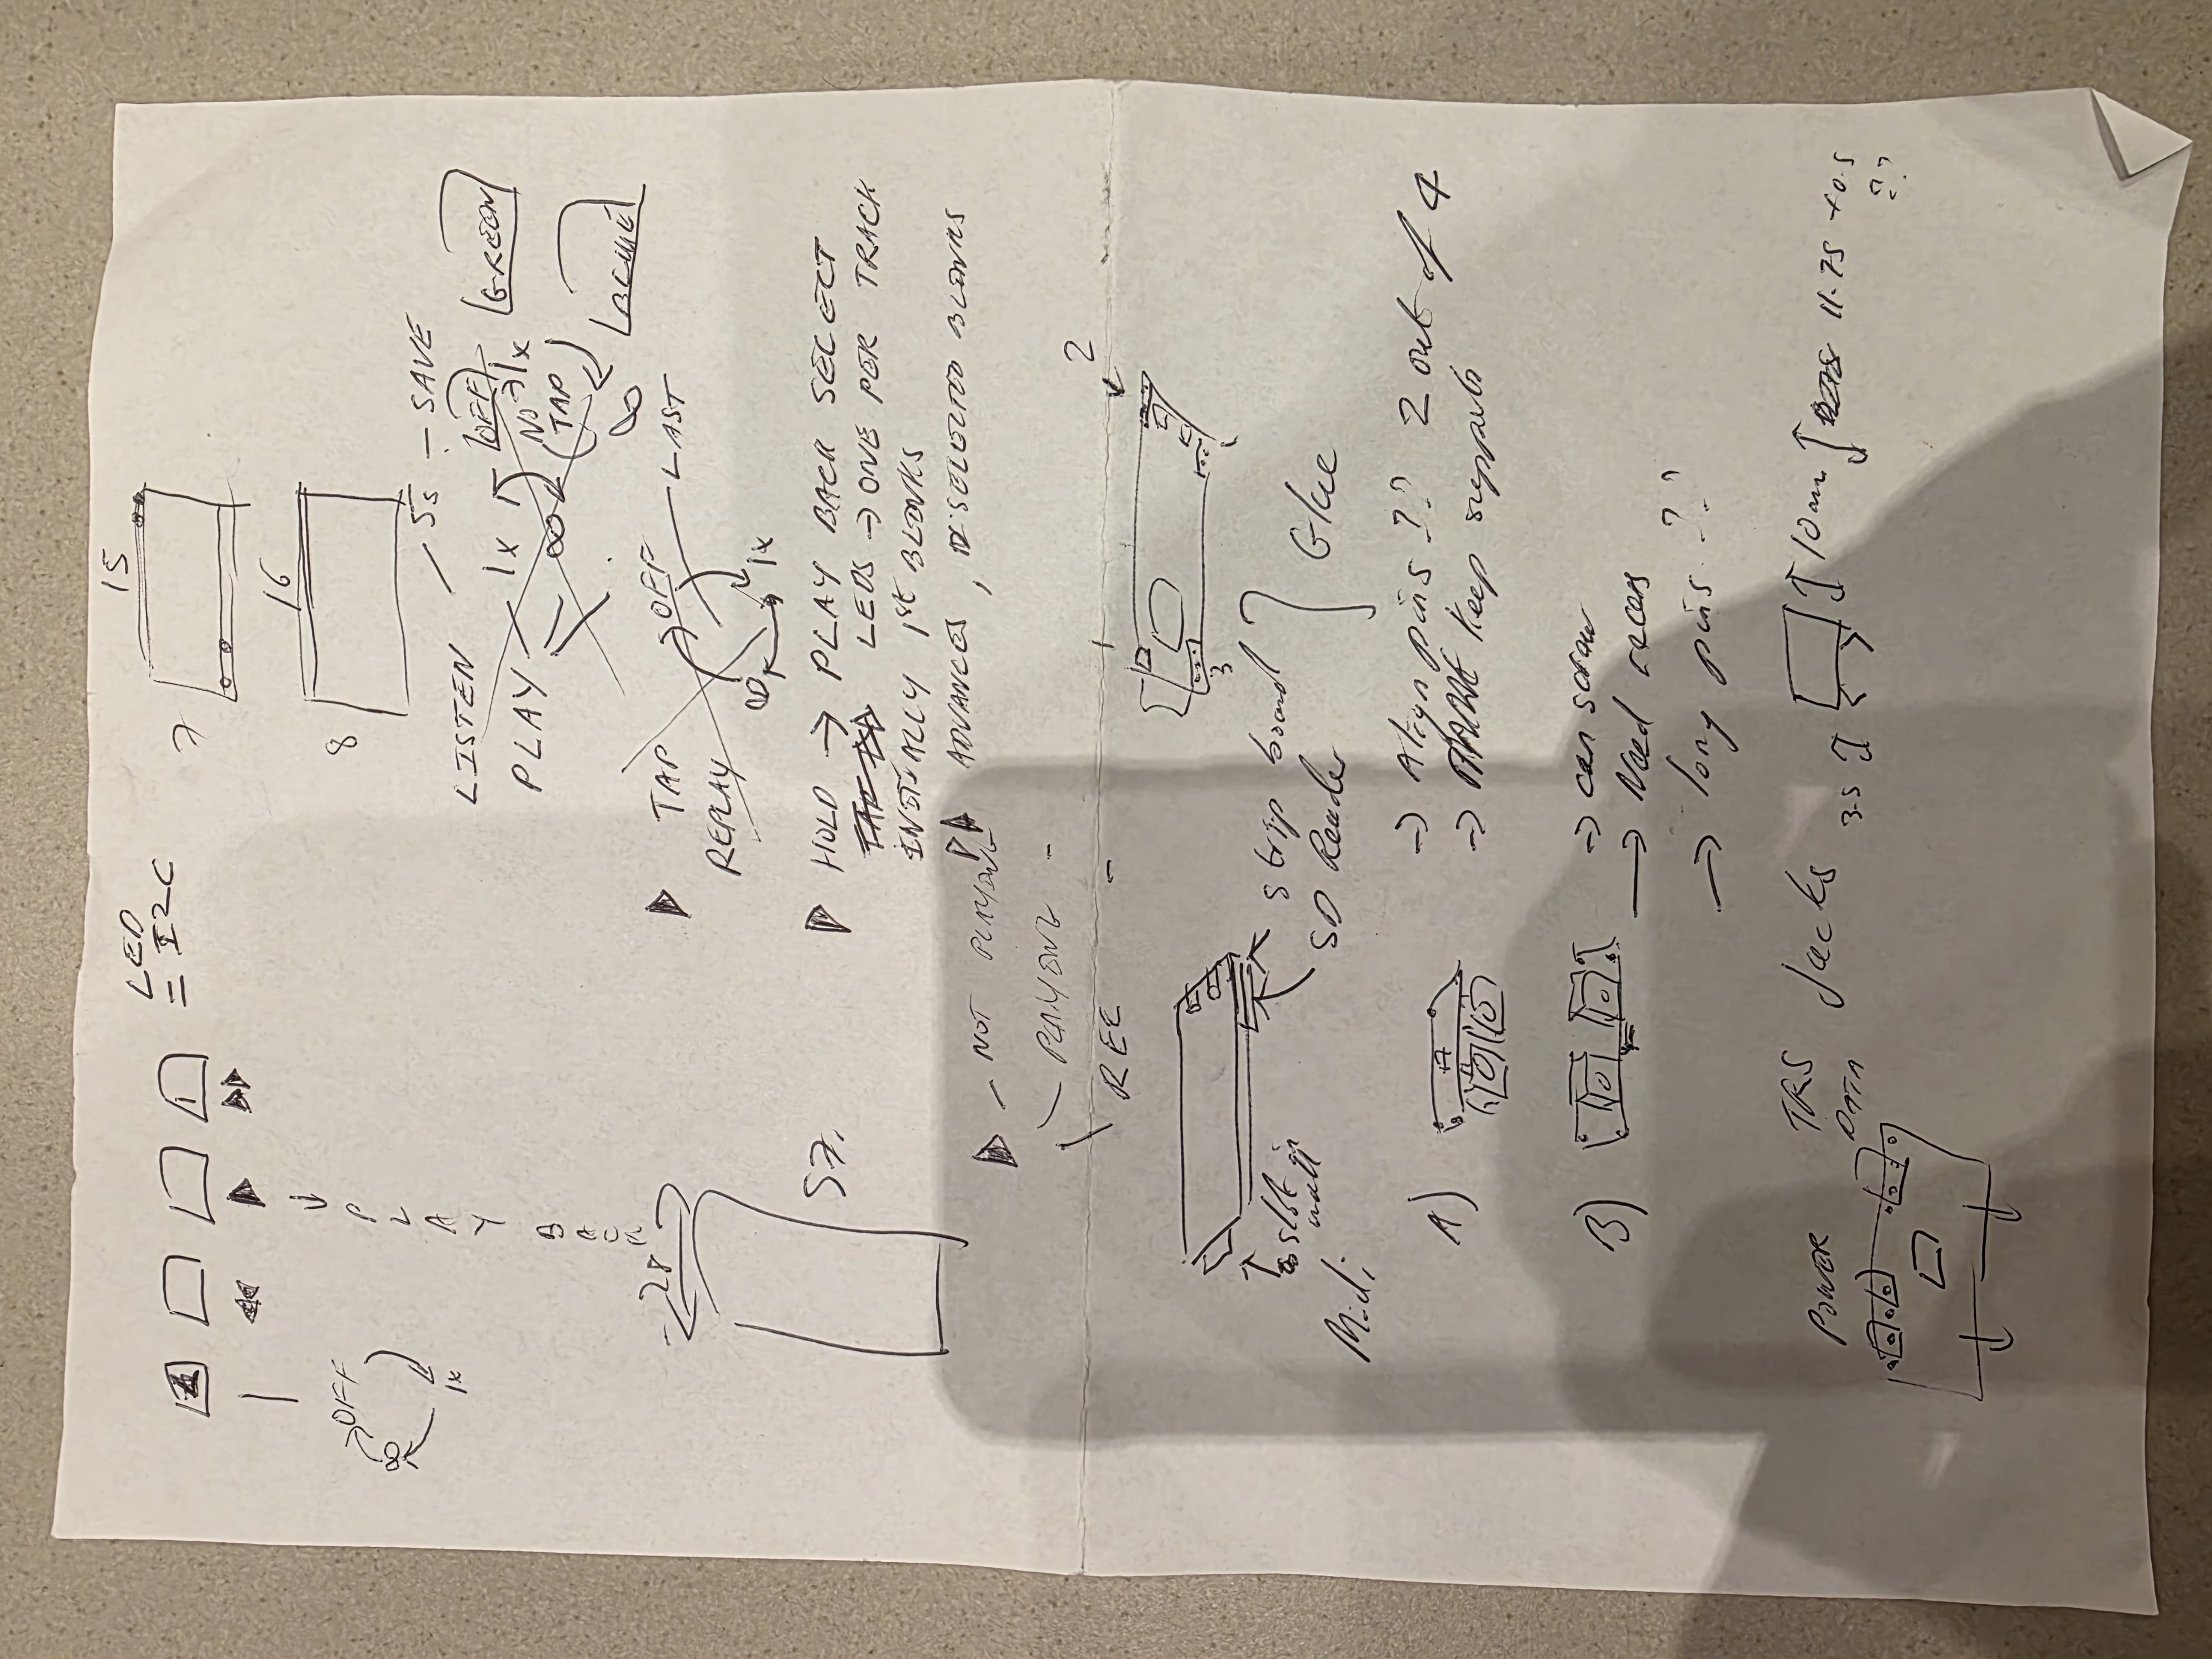 LED
= I2C
1x
OFF
∞
PLAY
BACK
28
57.
15
7
16
8
LISTEN - 5s - SAVE
PLAY 1x OFF GREEN
NO → 1x
TAP
∞ ∞
TAP OFF - LAST
REPLAY
∞ 1x
HOLD → PLAY BACK SELECT
LEDS → ONE PER TRACK
INITIALLY 1st BLINKS
ADVANCES, DESELECTED BLINKS
- NOT PLAYING
- PLAYING -
REC -
1 2
3
strip board
SD Reader
Glue
Midi
A) → Align pins ?? 2 out of 4
→ keep supports
B) → can screw
→ Need
→ long pins ??
POWER TRS Jacks 3.5 10mm 11.75 +0.5
DATA ??